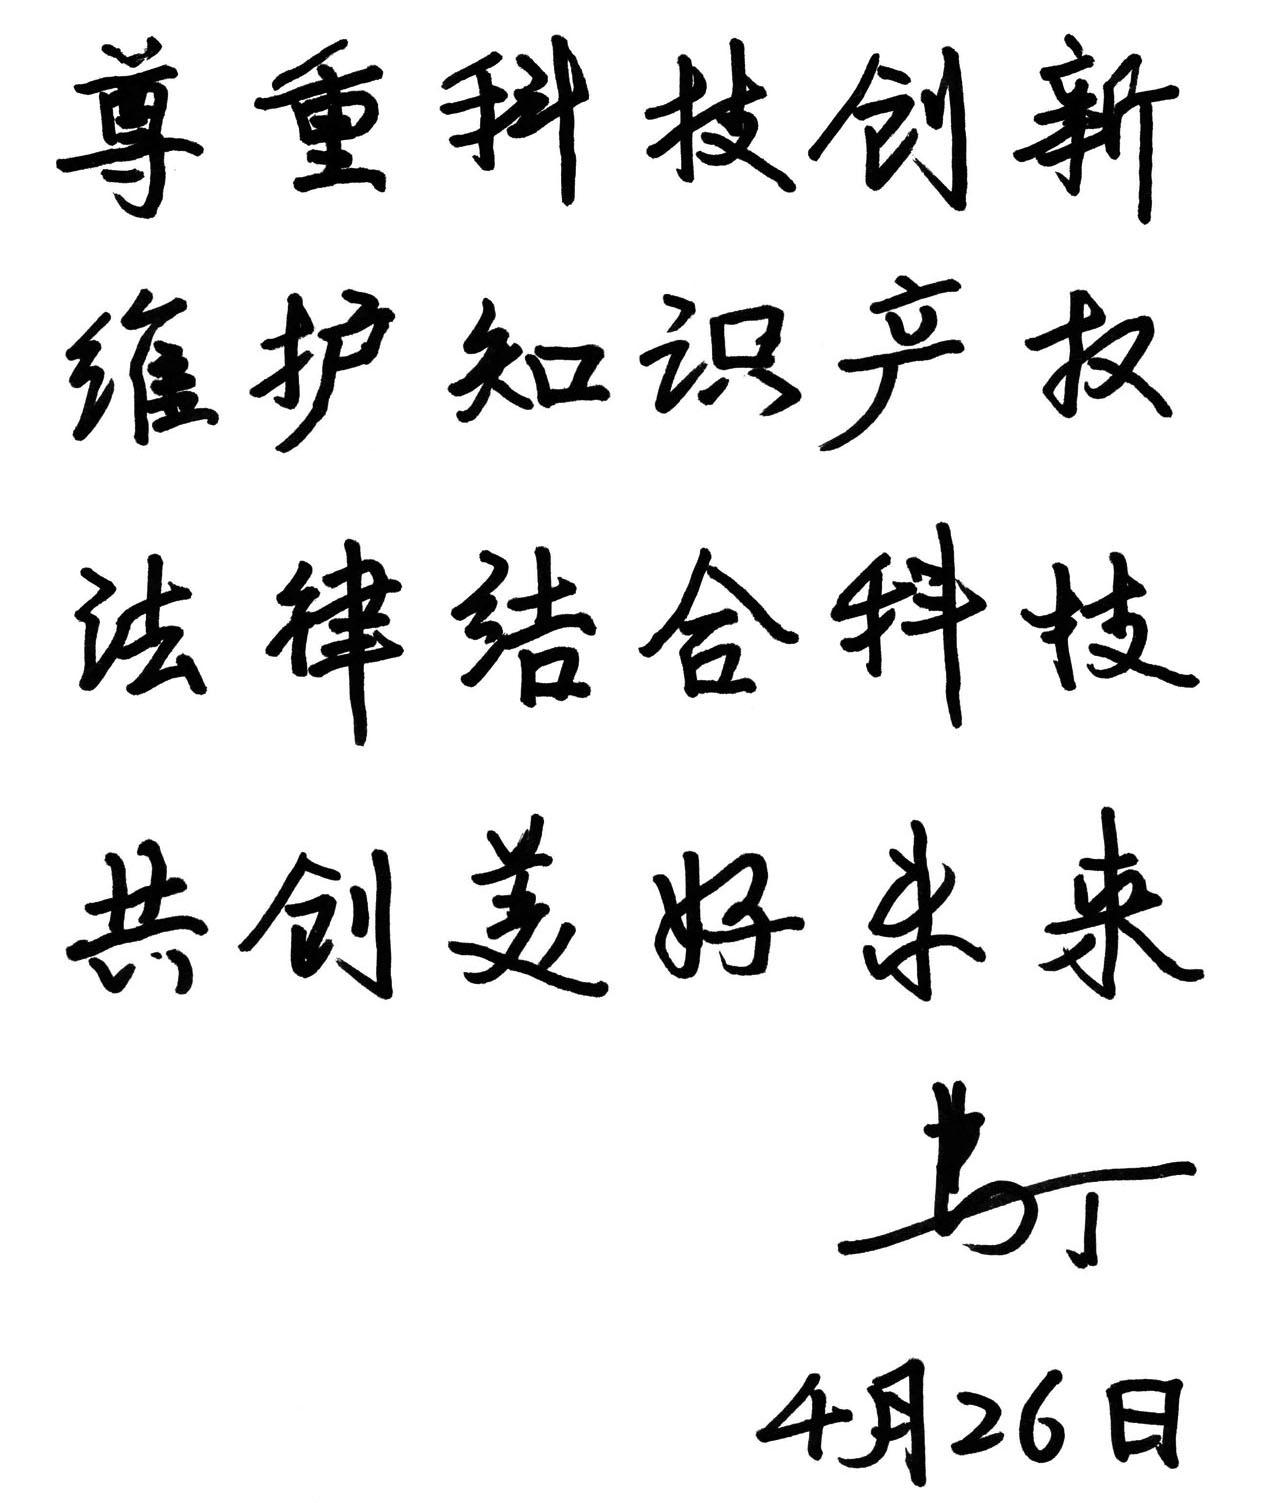 尊重科技创新
维护知识产权
法律结合科技
共创美好未来
4月26日